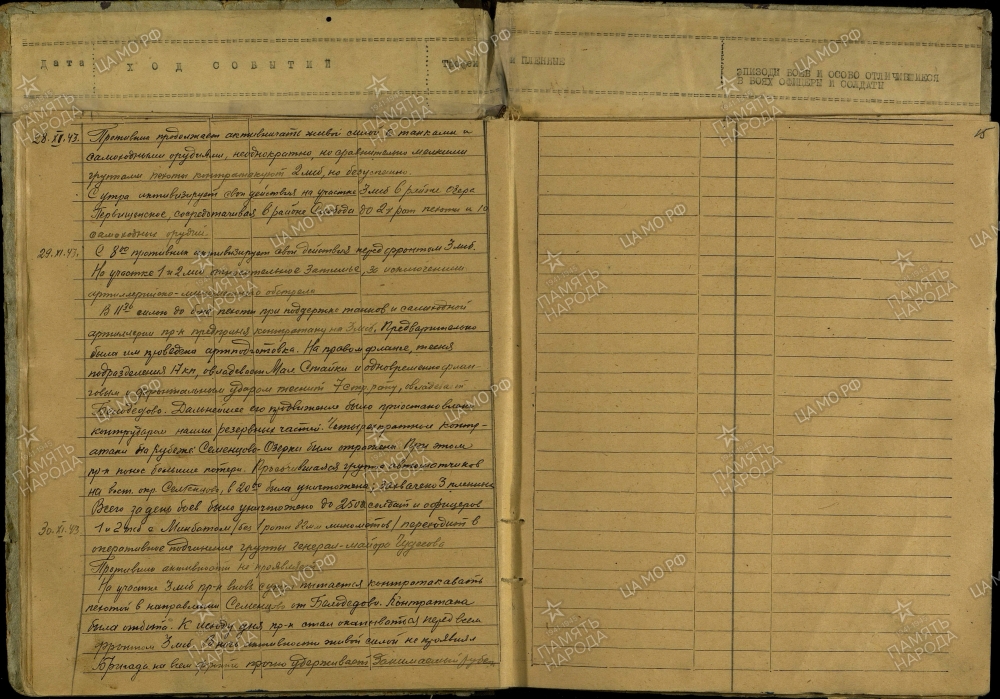 Дата ХОД СОБЫТИЙ Трофеи и пленные
ЭПИЗОДЫ БОЕВ И ОСОБО ОТЛИЧИВШИЕСЯ
В БОЯХ ОФИЦЕРЫ И СОЛДАТЫ
15
28.XI.43. Противник продолжает активничать живой силой с танками и
самоходными орудиями, неоднократно, но сравнительно мелкими
группами пехоты контратакует 2 мсб, но безуспешно.
С утра активизирует свои действия на участке 3 мсб в районе
сосредотачивая в районе Слобода до 2х рот пехоты и 10
самоходных орудий.
29.XI.43. С 8 00 противник активизирует свои действия перед фронтом 3 мсб.
На участке 1 и 2 мсб относительное затишье, за исключением
артиллерийско-минометного обстрела
В 11 силою до бат. пехоты при поддержке танков и самоходной
артиллерии пр-к предпринял контратаку на 3 мсб. Предварительно
была им проведена артподготовка. На правом фланге, тесня
подразделения 17 кп, овладевает Мал Стайки и одновременно флан-
говым и фронтальным ударом теснит 7 стр. роту, овладевает
Белобедово. Дальнейшее его продвижение было приостановлено
контрударом наших резервных частей. Четырехкратные контр-
атаки на рубеже Семенцово-Озерки были отражены. При этом
пр-к понес большие потери. Просочившаяся группа автоматчиков
на вост. окр. Семенцово, в 20 00 была уничтожена, захвачено 3 пленных
Всего за день боев было уничтожено до 250 солдат и офицеров
30.XI.43. 1 и 2 мсб с Минбатом /без 1 роты 82мм минометов/ переходит в
оперативное подчинение группы генерал-майора Чудесова
Противник активности не проявляет.
На участке 3 мсб пр-к вновь с утра пытается контратаковать
пехотой в направлении Семенцово от Белобедово. Контратака
была отбита. К исходу дня пр-к стал окапываться перед всем
фронтом 3 мсб. активности живой силой не проявлял
Бригада на всем фронте прочно удерживает занимаемый рубеж
ЦАМО.РФ
ПАМЯТЬ
НАРОДА